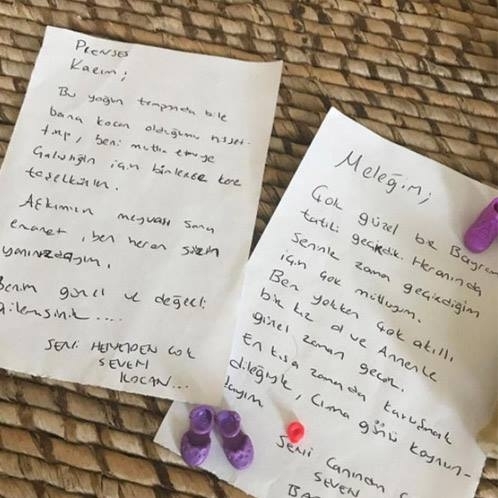 PRENSES
Karım;
Bu yoğun tempında bile
bana kocan olduğumu hisset-
tirip, beni mutlu etmeye
Çalıştığın için binlerce kere
teşekkürler.
Aşkımın meyvası sana
emanet, ben heran sizin
yanınızdayım.
Benim güzel ve değerli
ailemsiniz ....
SENİ HERŞEYDEN ÇOK
SEVEN
KOCAN...
Meleğim;
Çok güzel bir Bayram
tatili geçirdik. Heranında
Seninle zaman geçirdiğim
için çok mutluyum.
Ben yokken çok akıllı
bir kız ol ve Annenle
güzel zaman geçir.
En kısa zamanda kavuşmak
dileğiyle, Cuma günü koynun-
dayım
Seni Canından
SEVEN
BA